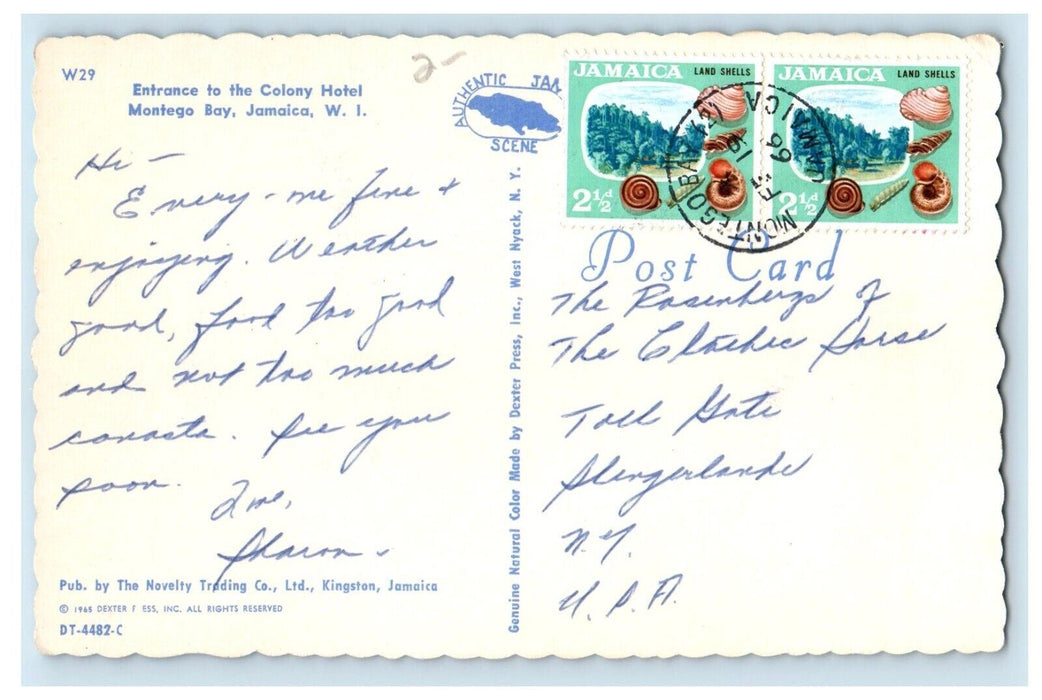 W29
Entrance to the Colony Hotel
Montego Bay, Jamaica, W. I.
2-
AUTHENTIC JAM
SCENE
JAMAICA LAND SHELLS
2½d
JAMAICA LAND SHELLS
2½d
MONTEGO BAY
JAMAICA
66
Post Card
Hi —
Every-one fine &
enjoying. Weather
good, food too good
and not too much
canasta. See you
soon.
Love,
Sharon
The Rosenbergs of
The Clothes Horse
Toll Gate
Slingerlands
N.Y.
U.S.A.
Genuine Natural Color Made by Dexter Press, Inc., West Nyack, N. Y.
Pub. by The Novelty Trading Co., Ltd., Kingston, Jamaica
© 1965 DEXTER P ESS, INC. ALL RIGHTS RESERVED
DT-4482-C